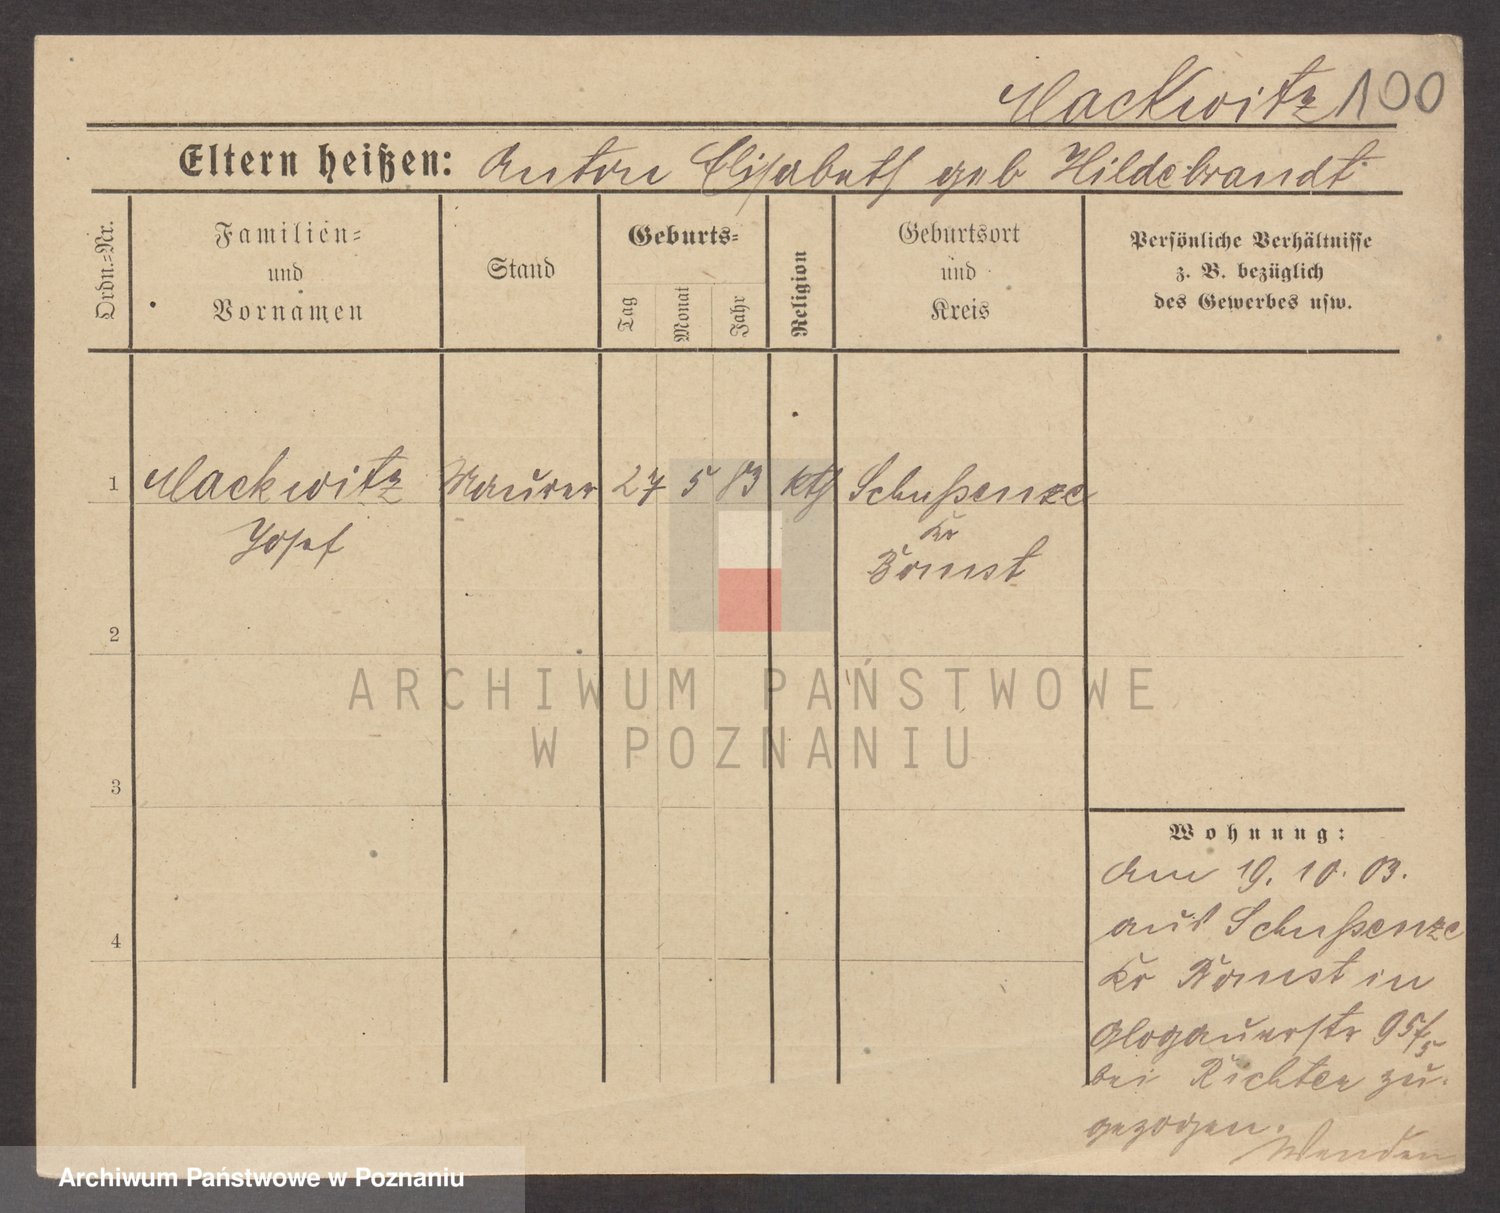 Mackwitz 100
Eltern heißen: Anton Elisabeth geb Hildebrandt
Ordn.-Nr.
Familien-
und
Vornamen
Stand
Geburts-
Tag
Monat
Jahr
Religion
Geburtsort
und
Kreis
Persönliche Verhältnisse
z. B. bezüglich
des Gewerbes usw.
1 Mackwitz Maurer 27 5 83 kth Schußenze
Josef
Kr
Bomst
2
3
4
Wohnung:
Am 19. 10. 03.
aus Schußenze
Kr Bomst in
Glogauerstr 95/5
bei Richter zu-
gezogen.
Wenden
ARCHIWUM PAŃSTWOWE
W POZNANIU
Archiwum Państwowe w Poznaniu